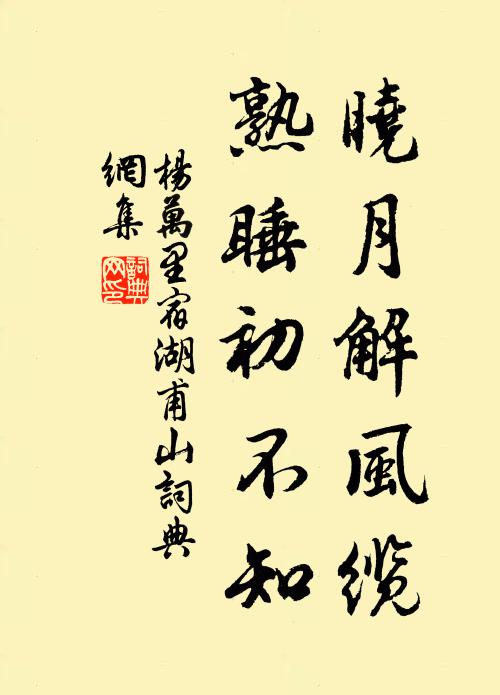 曉月解風纜
熟睡初不知
楊萬里宿湖甫山詞典
網集
詞典
网印